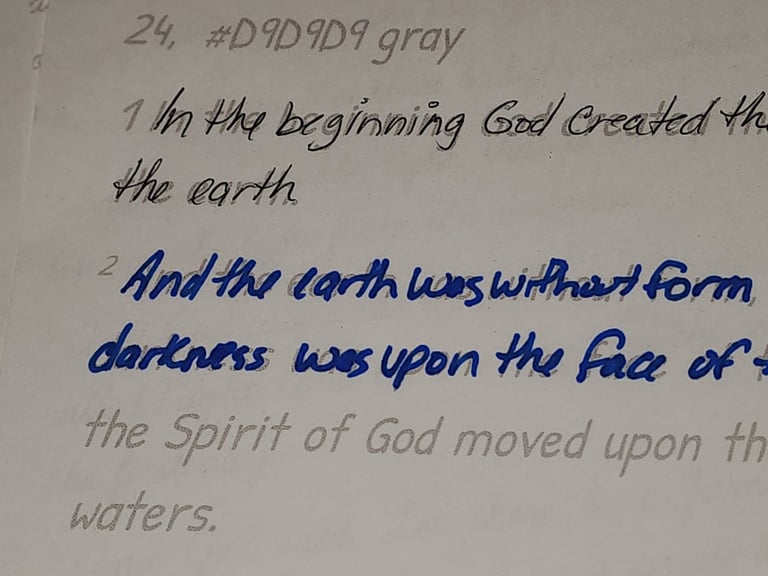 24, #D9D9D9 gray
1 In the beginning God created th
the earth.
2 And the earth was without form,
darkness was upon the face of t
the Spirit of God moved upon th
waters.